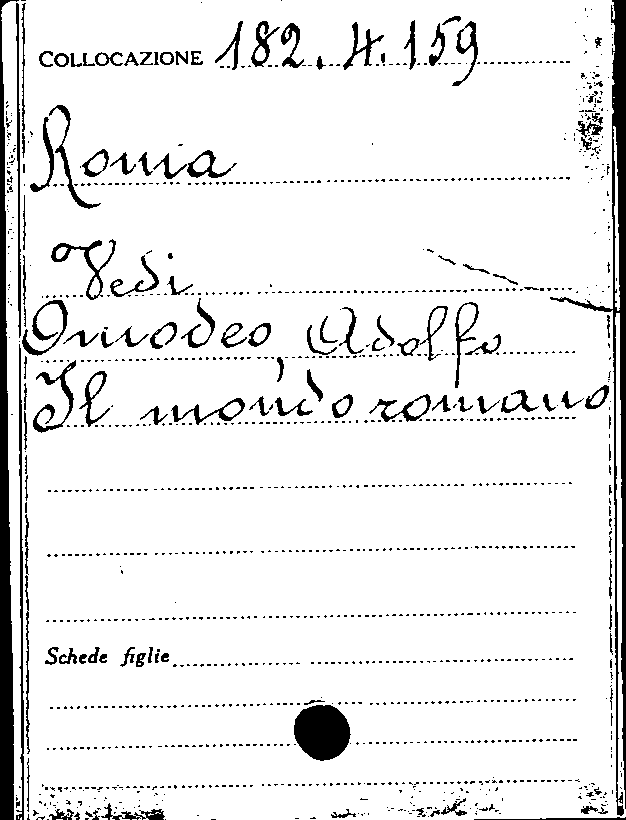 COLLOCAZIONE 182.4.159
Roma
Vedi
Omodeo, Adolfo
Il mondo romano
Schede figlie